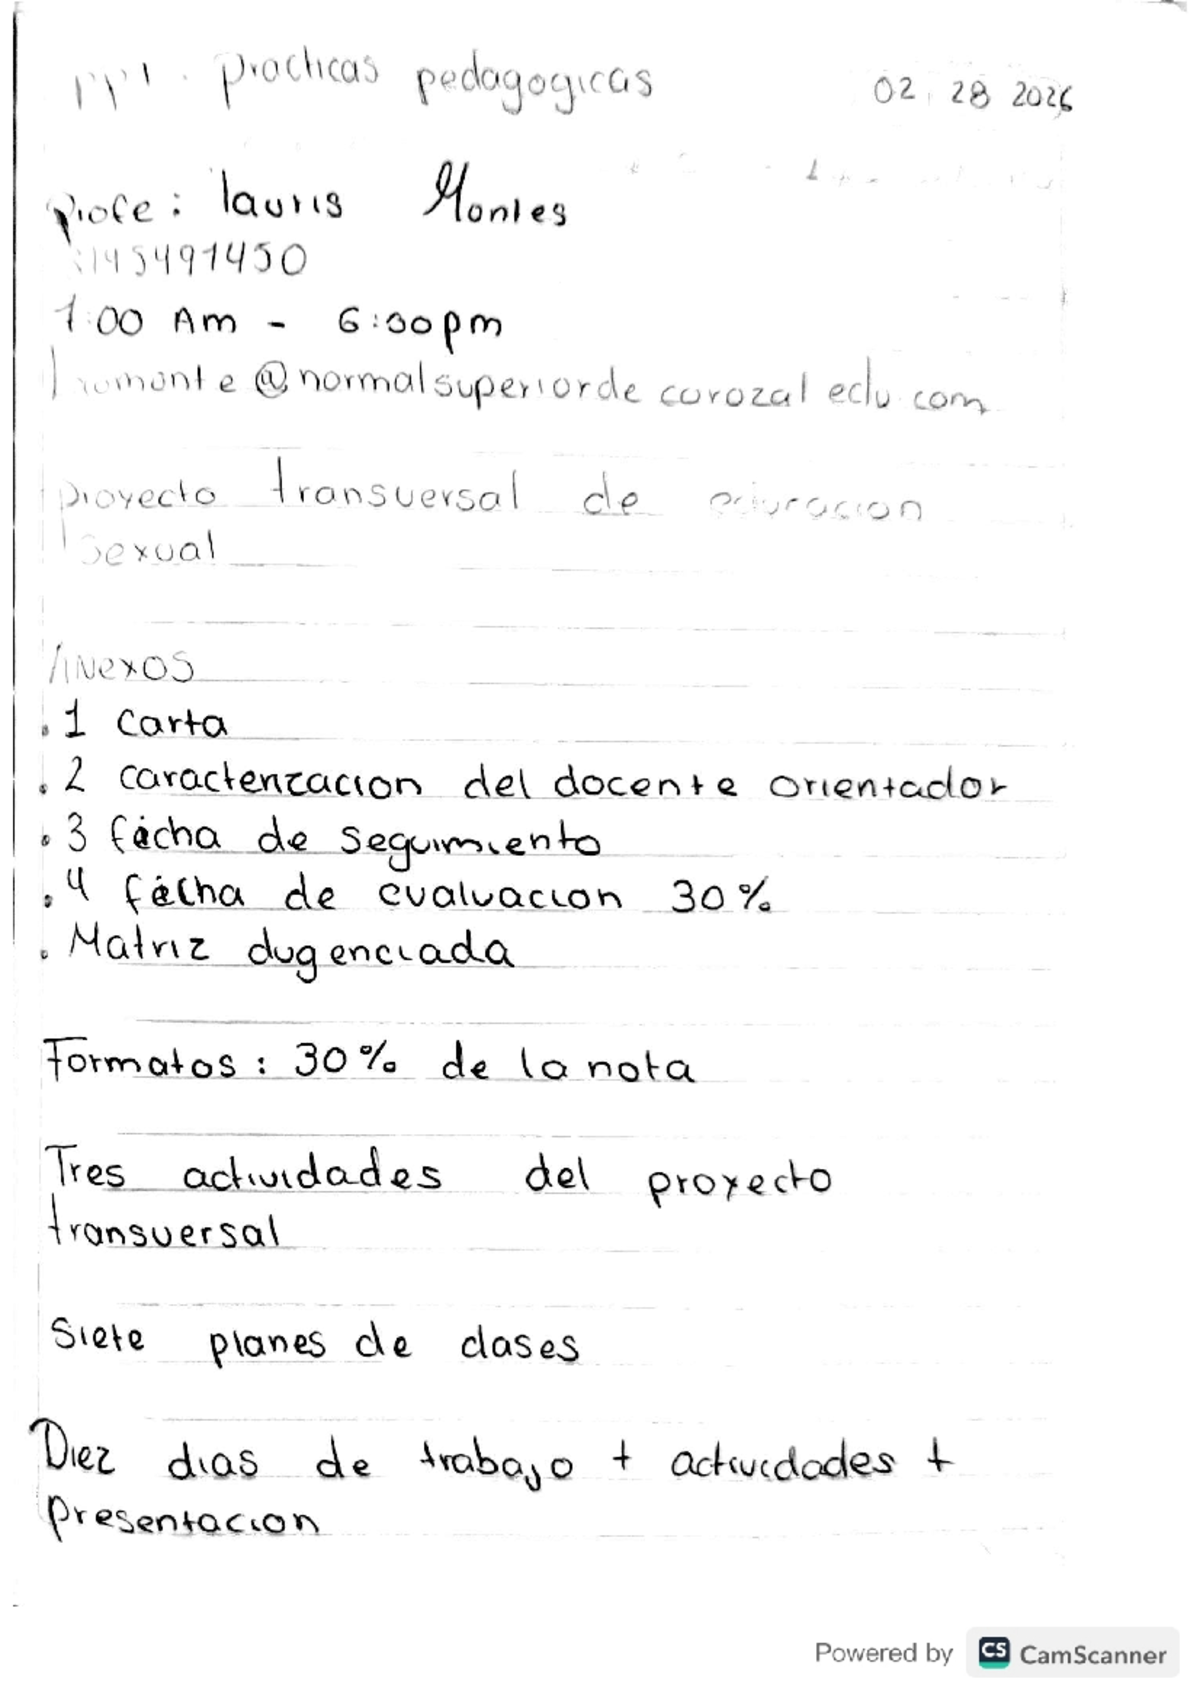 practicas pedagogicas 02 28 2026
profe: lauris Montes
145491450
1:00 Am - 6:00pm
@normalsuperiorde corozal edu.com
proyecto transversal de educacion
Sexual
Anexos
.1 Carta
.2 caracterizacion del docente orientador
.3 fécha de seguimiento
.4 fécha de evaluacion 30%
. Matriz
Formatos: 30% de la nota
Tres actividades del proyecto
transversal
Siete planes de clases
Diez dias de trabajo + actividades +
presentacion
Powered by CS CamScanner